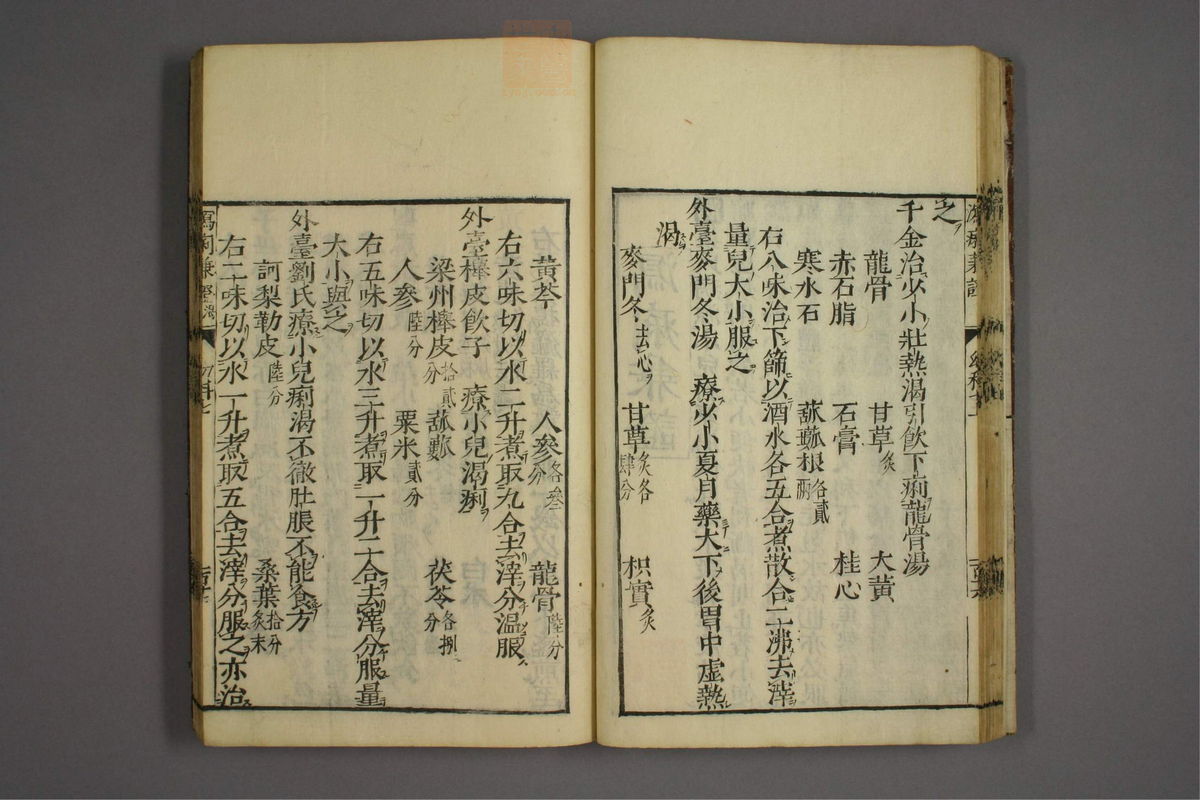 之
千金治少小壯熱渴引飲下痢龍骨湯
龍骨 甘草炙 大黃
赤石脂 石膏 桂心
寒水石 菰䔧根各貳兩
右八味治下篩以酒水各五合煮散合二沸去滓
量兒大小服之
外臺麥門冬湯 療少小夏月藥大下後胃中虛熱
渴
麥門冬去心 甘草炙各肆分 枳實炙
黃芩 人參各叁分 龍骨陸分
右六味切以水二升煮取九合去滓分溫服
外臺櫸皮飲子 療小兒渴痢
梁州櫸皮拾貳分 菰䔧 茯苓各捌分
人參陸分 粟米貳分
右五味切以水三升煮取一升二合去滓分服量
大小與之
外臺劉氏療小兒痢渴不徹肚脹不能食方
訶梨勒皮陸分 桑葉拾分炙末
右二味切以水一升煮取五合去滓分服之亦治